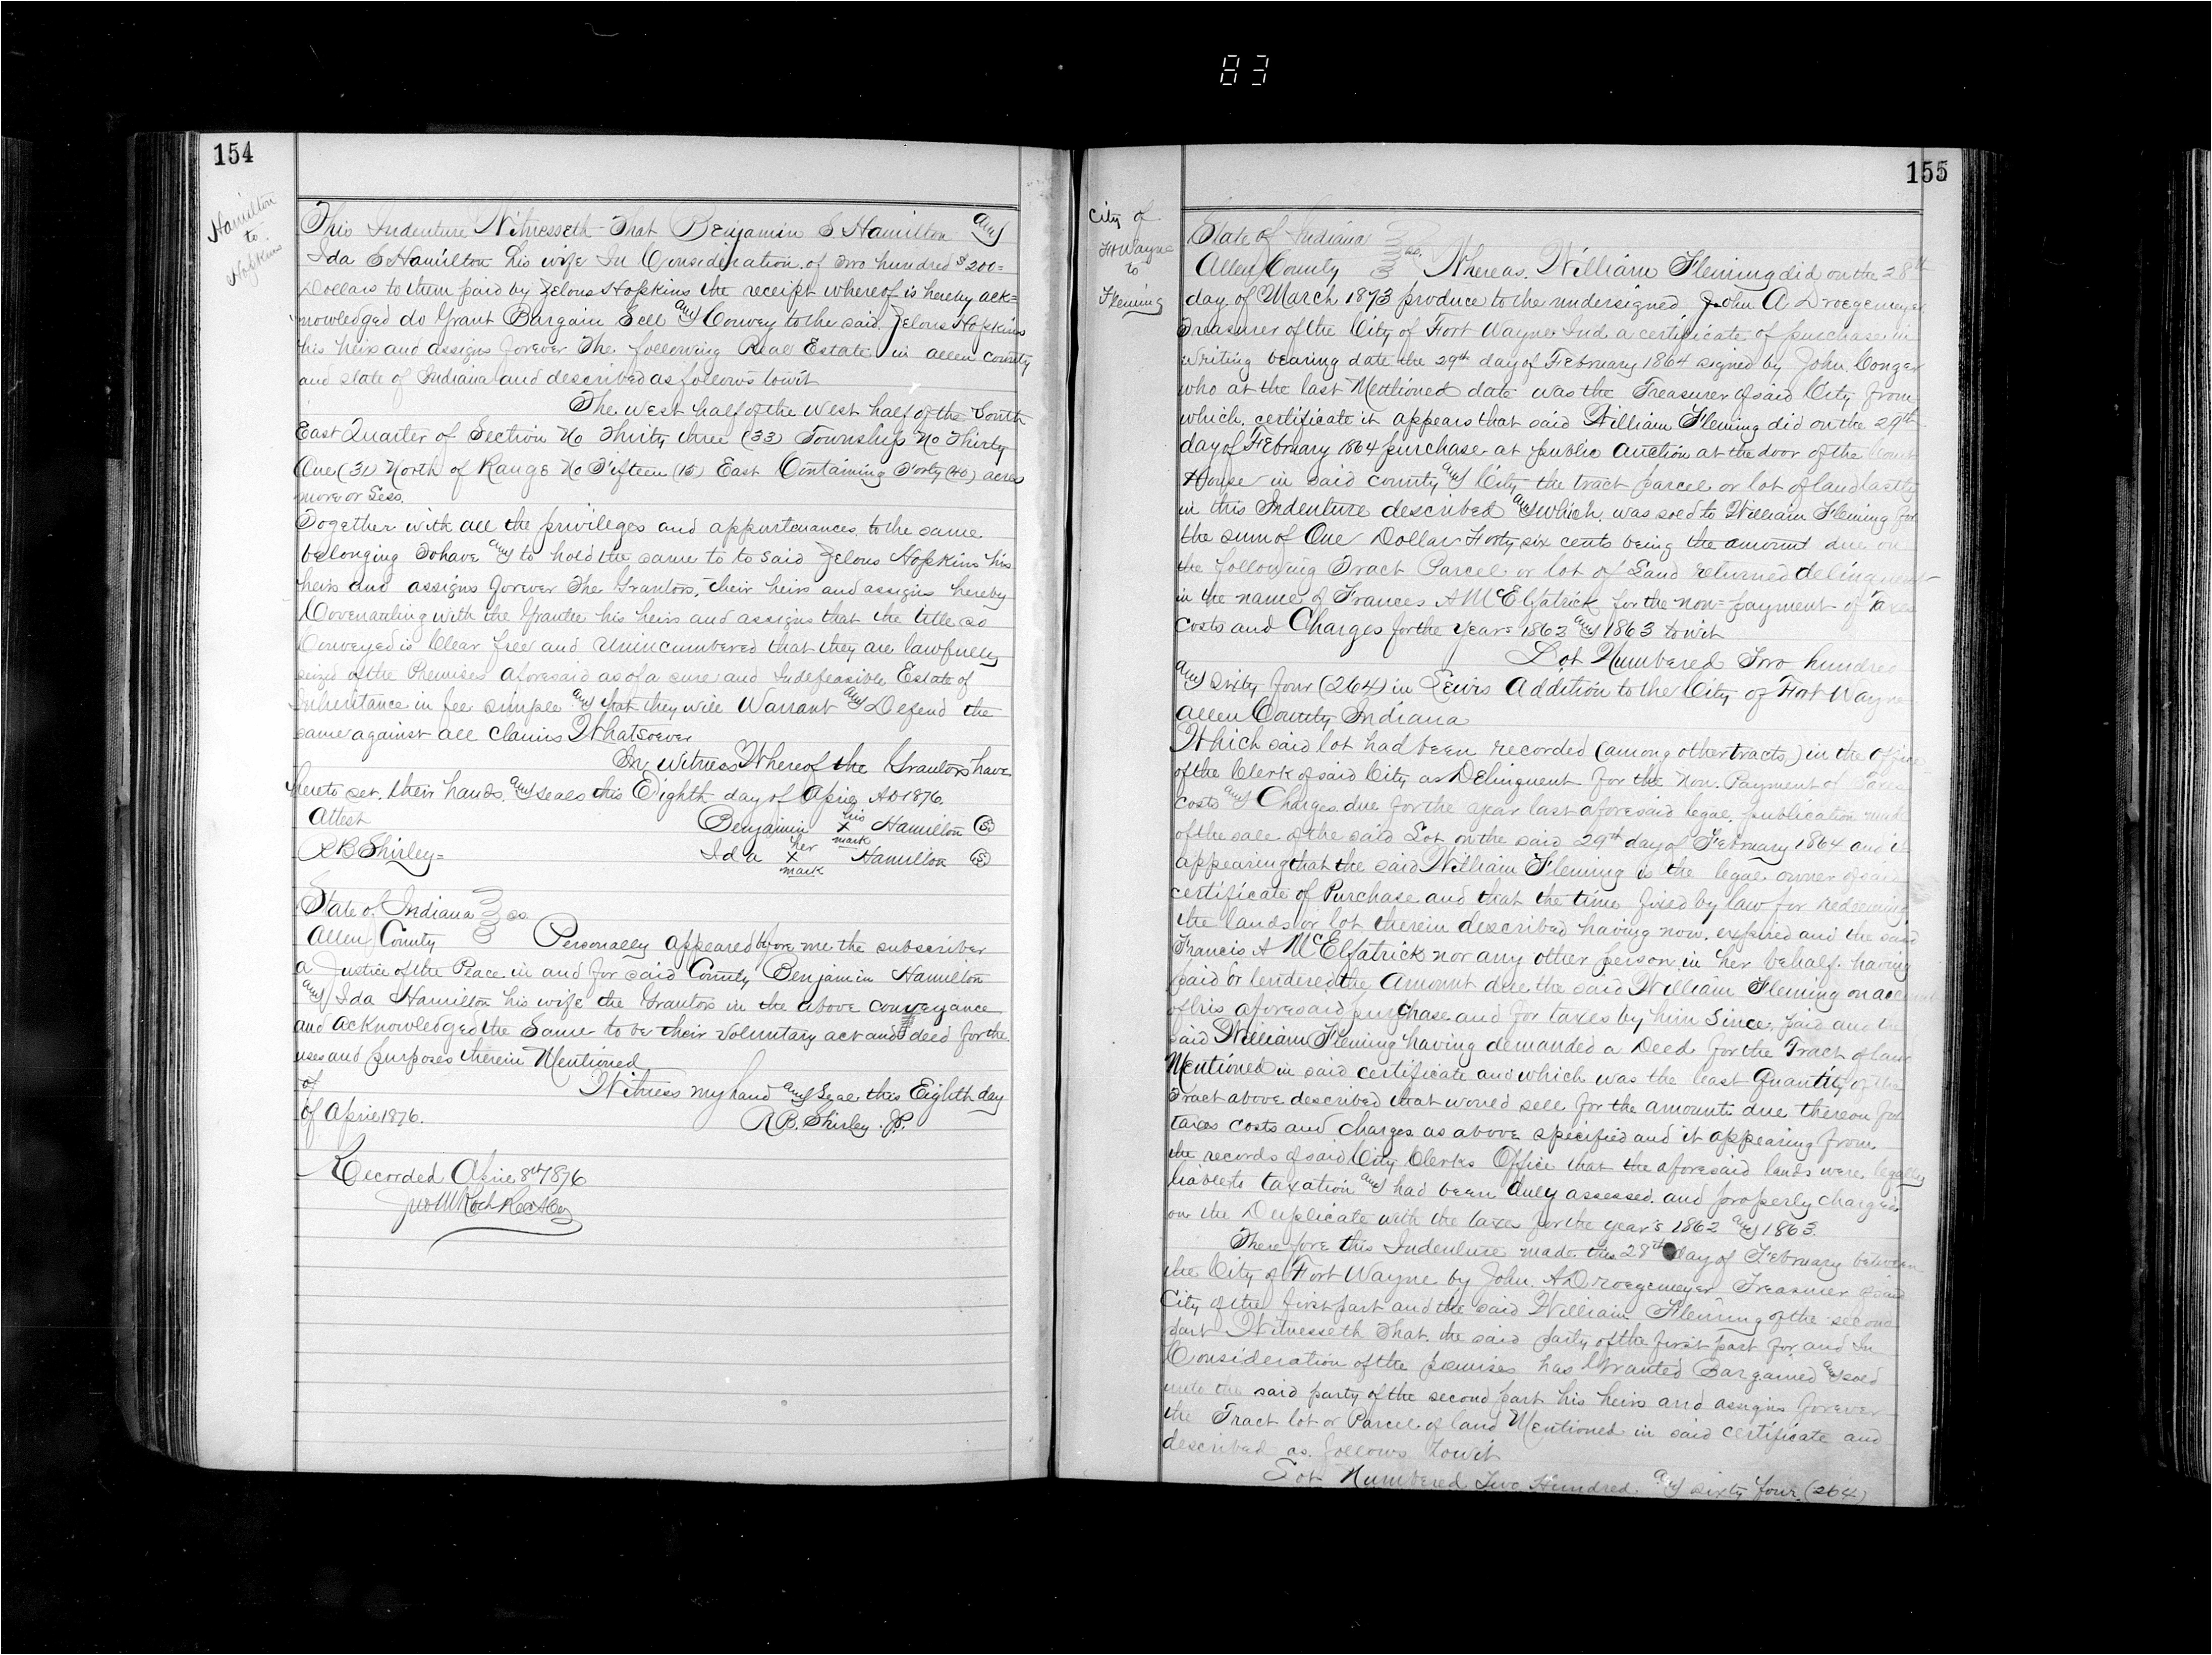 83
154
Hamilton
to
Hopkins
This Indenture Witnesseth That Benjamin S Hamilton and
Ida S Hamilton his wife In Consideration of Two hundred $200=
Dollars to them paid by Zelous Hopkins the receipt whereof is hereby ack=
nowledged do Grant Bargain Sell and Convey to the said Zelous Hopkins
his heirs and assigns forever The following Real Estate in allen county
and state of Indiana and described as follows towit
The west half of the west half of the South
East Quarter of Section No Thirty three (33) Township No Thirty
One (31) North of Range No Fifteen (15) East Containing Forty (40) acres
more or Less.
Together with all the privileges and appurtenances to the same
belonging To have and to hold the same to to said Zelous Hopkins his
heirs and assigns forever The Grantors, their heirs and assigns hereby
Covenanting with the Grantee his heirs and assigns that the title so
Conveyed is Clear free and Unincumbered that they are lawfully
seized of the Premises aforesaid as of a sure and Indefeasible Estate of
Inheritance in fee simple and that they will Warrant and Defend the
same against all claims Whatsoever
In Witness Whereof the Grantors have
hereto set their hands and seals this Eighth day of April AD 1876.
Attest Benjamin his x mark Hamilton (S)
R B Shirley= Ida her x mark Hamilton (S)
State of Indiana } ss
Allen County } Personally appeared before me the subscriber
a Justice of the Peace in and for said County Benjamin Hamilton
and Ida Hamilton his wife the Grantors in the above conveyance
and acknowledged the Same to be their voluntary act and deed for the
uses and purposes therein Mentioned
of Witness my hand and Seal this Eighth day
of April 1876. R B. Shirley J.P.
Recorded April 8th 1876
Jno M Koch Rec A Co
155
City of
Ft Wayne
to
Fleming
State of Indiana } ss.
Allen County } Whereas, William Fleming did on the 28th
day of March 1873 produce to the undersigned John A Droegemeyer
Treasurer of the City of Fort Wayne Ind a certificate of purchase in
writing bearing date the 29th day of February 1864 signed by John Conger
who at the last Mentioned date was the Treasurer of said City from
which certificate it appears that said William Fleming did on the 29th
day of February 1864 purchase at public Auction at the door of the Court
House in said county and City the tract parcel or lot of land lastly
in this Indenture described and which was sold to William Fleming for
the sum of One Dollar Forty six cents being the amount due on
the following Tract Parcel or lot of Land returned delinquent
in the name of Frances A McElfatrick for the non=payment of Taxes
Costs and Charges for the Years 1863 and 1863 towit
Lot Numbered Two hundred
and sixty four (264) in Lewis Addition to the City of Fort Wayne
Allen County Indiana
Which said lot had been recorded (among other tracts) in the office
of the Clerk of said City as Delinquent for the Non Payment of Taxes
costs and Charges due for the year last aforesaid legal publication made
of the sale of the said Lot on the said 29th day of February 1864 and it
appearing that the said William Fleming is the legal owner of said
certificate of Purchase and that the time fixed by law for redeeming
the lands or lot therein described having now expired and the said
Francis A McElfatrick nor any other person in her behalf having
paid or tendered the Amount due the said William Fleming on account
of his aforesaid purchase and for taxes by him Since paid and the
said William Fleming having demanded a Deed for the Tract of land
Mentioned in said certificate and which was the least Quantity of the
Tract above described that would sell for the amounts due thereon for
taxes costs and charges as above specified and it appearing from
the records of said City Clerks Office that the aforesaid lands were legally
liable to taxation and had been duly assessed and properly charged
on the Duplicate with the taxes for the year's 1862 and 1863.
Therefore this Indenture made this 29th day of February between
the City of Fort Wayne by John A Droegemeyer Treasurer of said
City of the first part and the said William Fleming of the second
part Witnesseth That the said party of the first part for and In
Consideration of the premises has Granted Bargained and sold
unto the said party of the second part his heirs and assigns forever
the Tract lot or Parcel of land Mentioned in said certificate and
described as follows towit
Lot Numbered Two Hundred and sixty four (264)